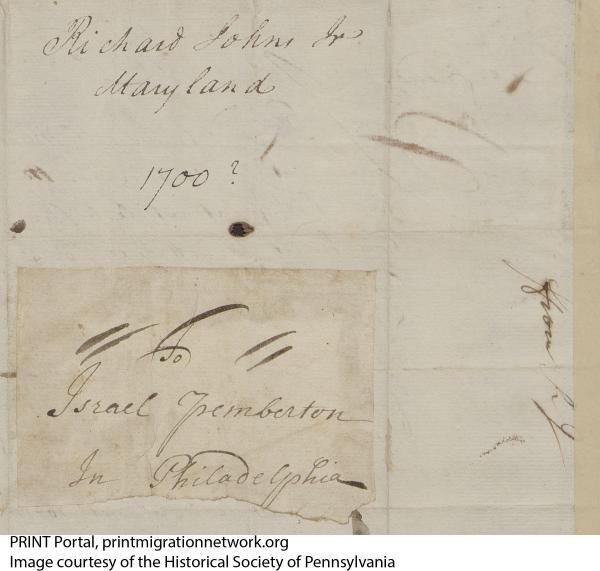 Richard Johns Jr
Maryland
1700?
To
Israel Pemberton
In Philadelphia
from
PRINT Portal, printmigrationnetwork.org
Image courtesy of the Historical Society of Pennsylvania